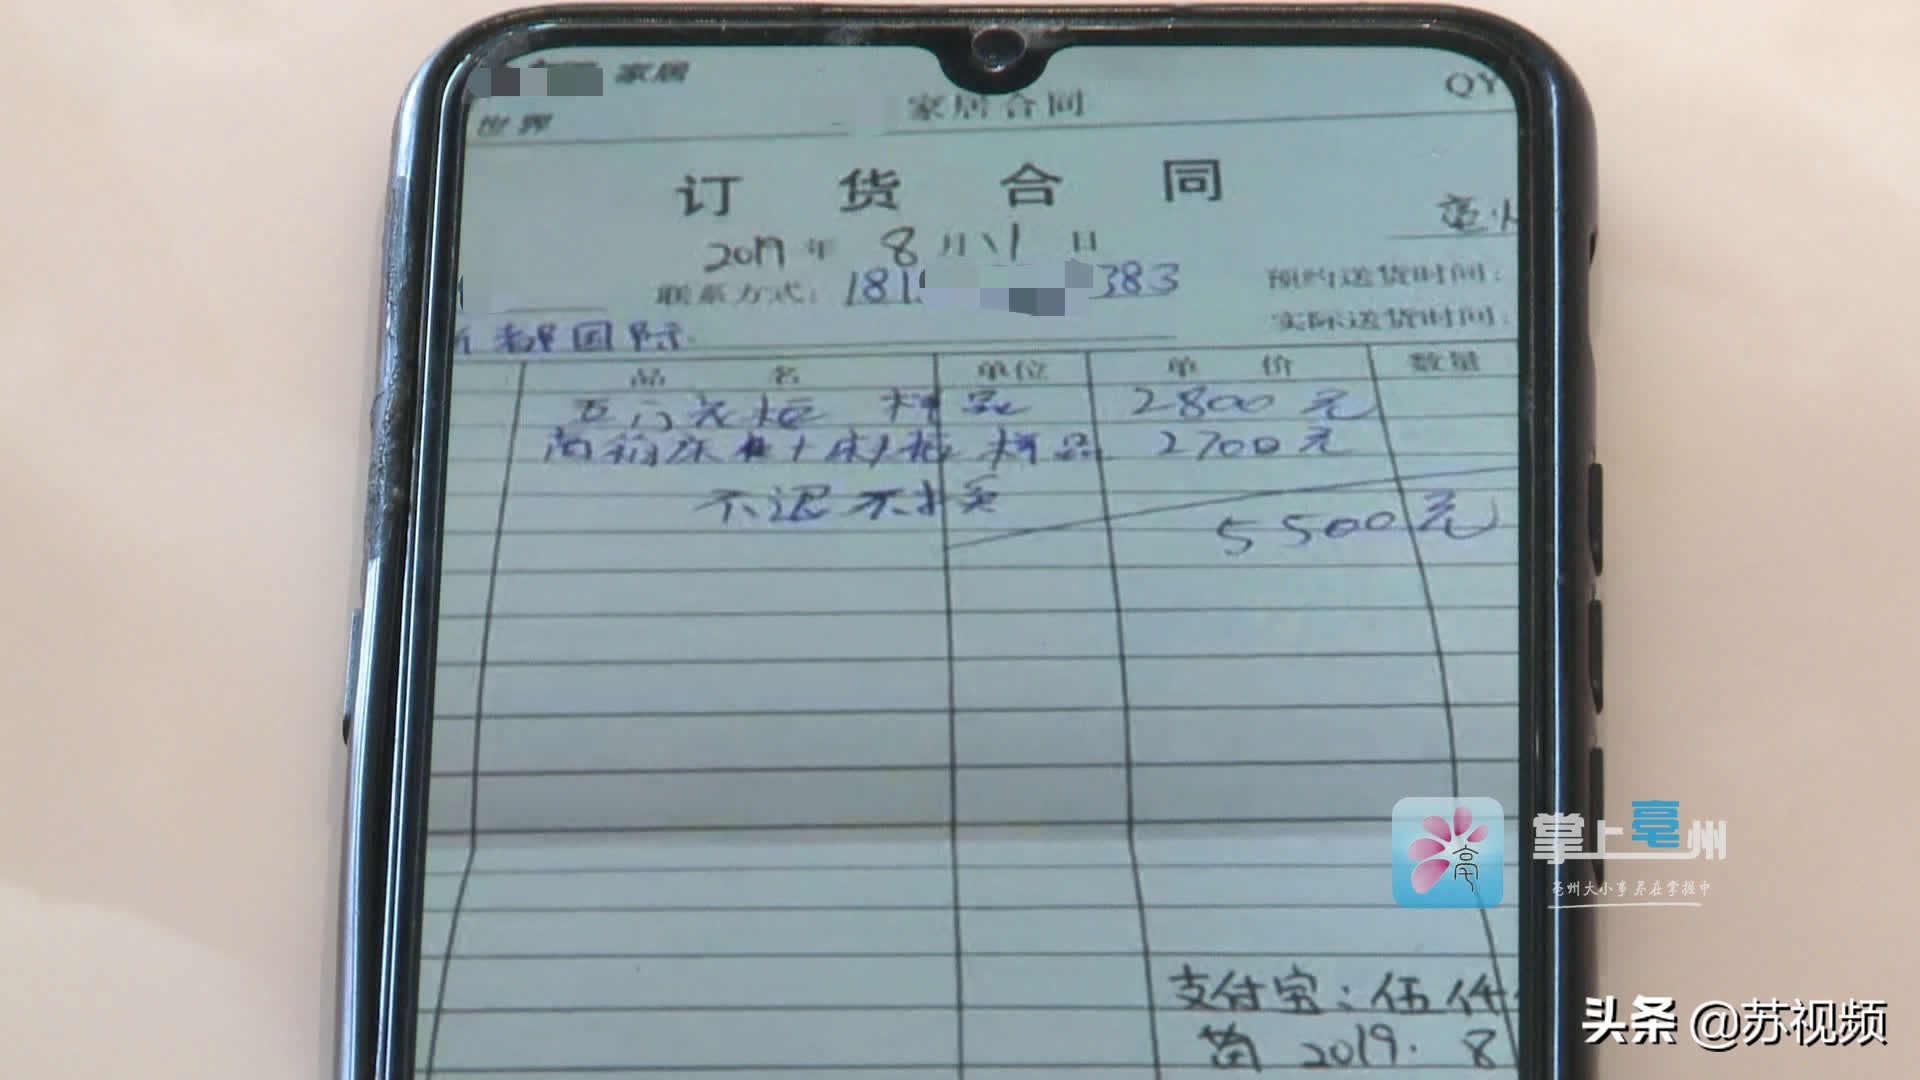 家居
家居合同
QY
世界
订货合同
亳州
2019年 8月 11日
联系方式: 181 383
预约送货时间:
实际送货时间:
都国际
品名 单位 单价 数量
五门衣柜 样品 2800元
床 + 床头柜 样品 2700元
不退不换
5500元
支付宝: 伍仟
苗 2019. 8
掌上亳州
亳州大小事 尽在掌握中
头条 @苏视频